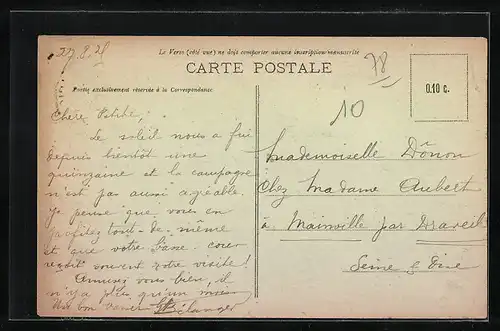 27.8.21
Le Verso (côté vue) ne doit comporter aucune inscription manuscrite
CARTE POSTALE
Partie exclusivement réservée à la Correspondance
78
10
0.10 c.
Chère
Le soleil nous a fui
depuis bientôt une
quinzaine et la campagne
n'est pas aussi agréable.
Je pense que vous en
profitez tout de même
et que votre basse cour
reçoit souvent votre visite!
Amusez vous bien, il
n'y a plus qu'un mois
bon baiser
Mademoiselle Dônon
Chez Madame Aubert
à Mainville par Draveil
Seine & Oise